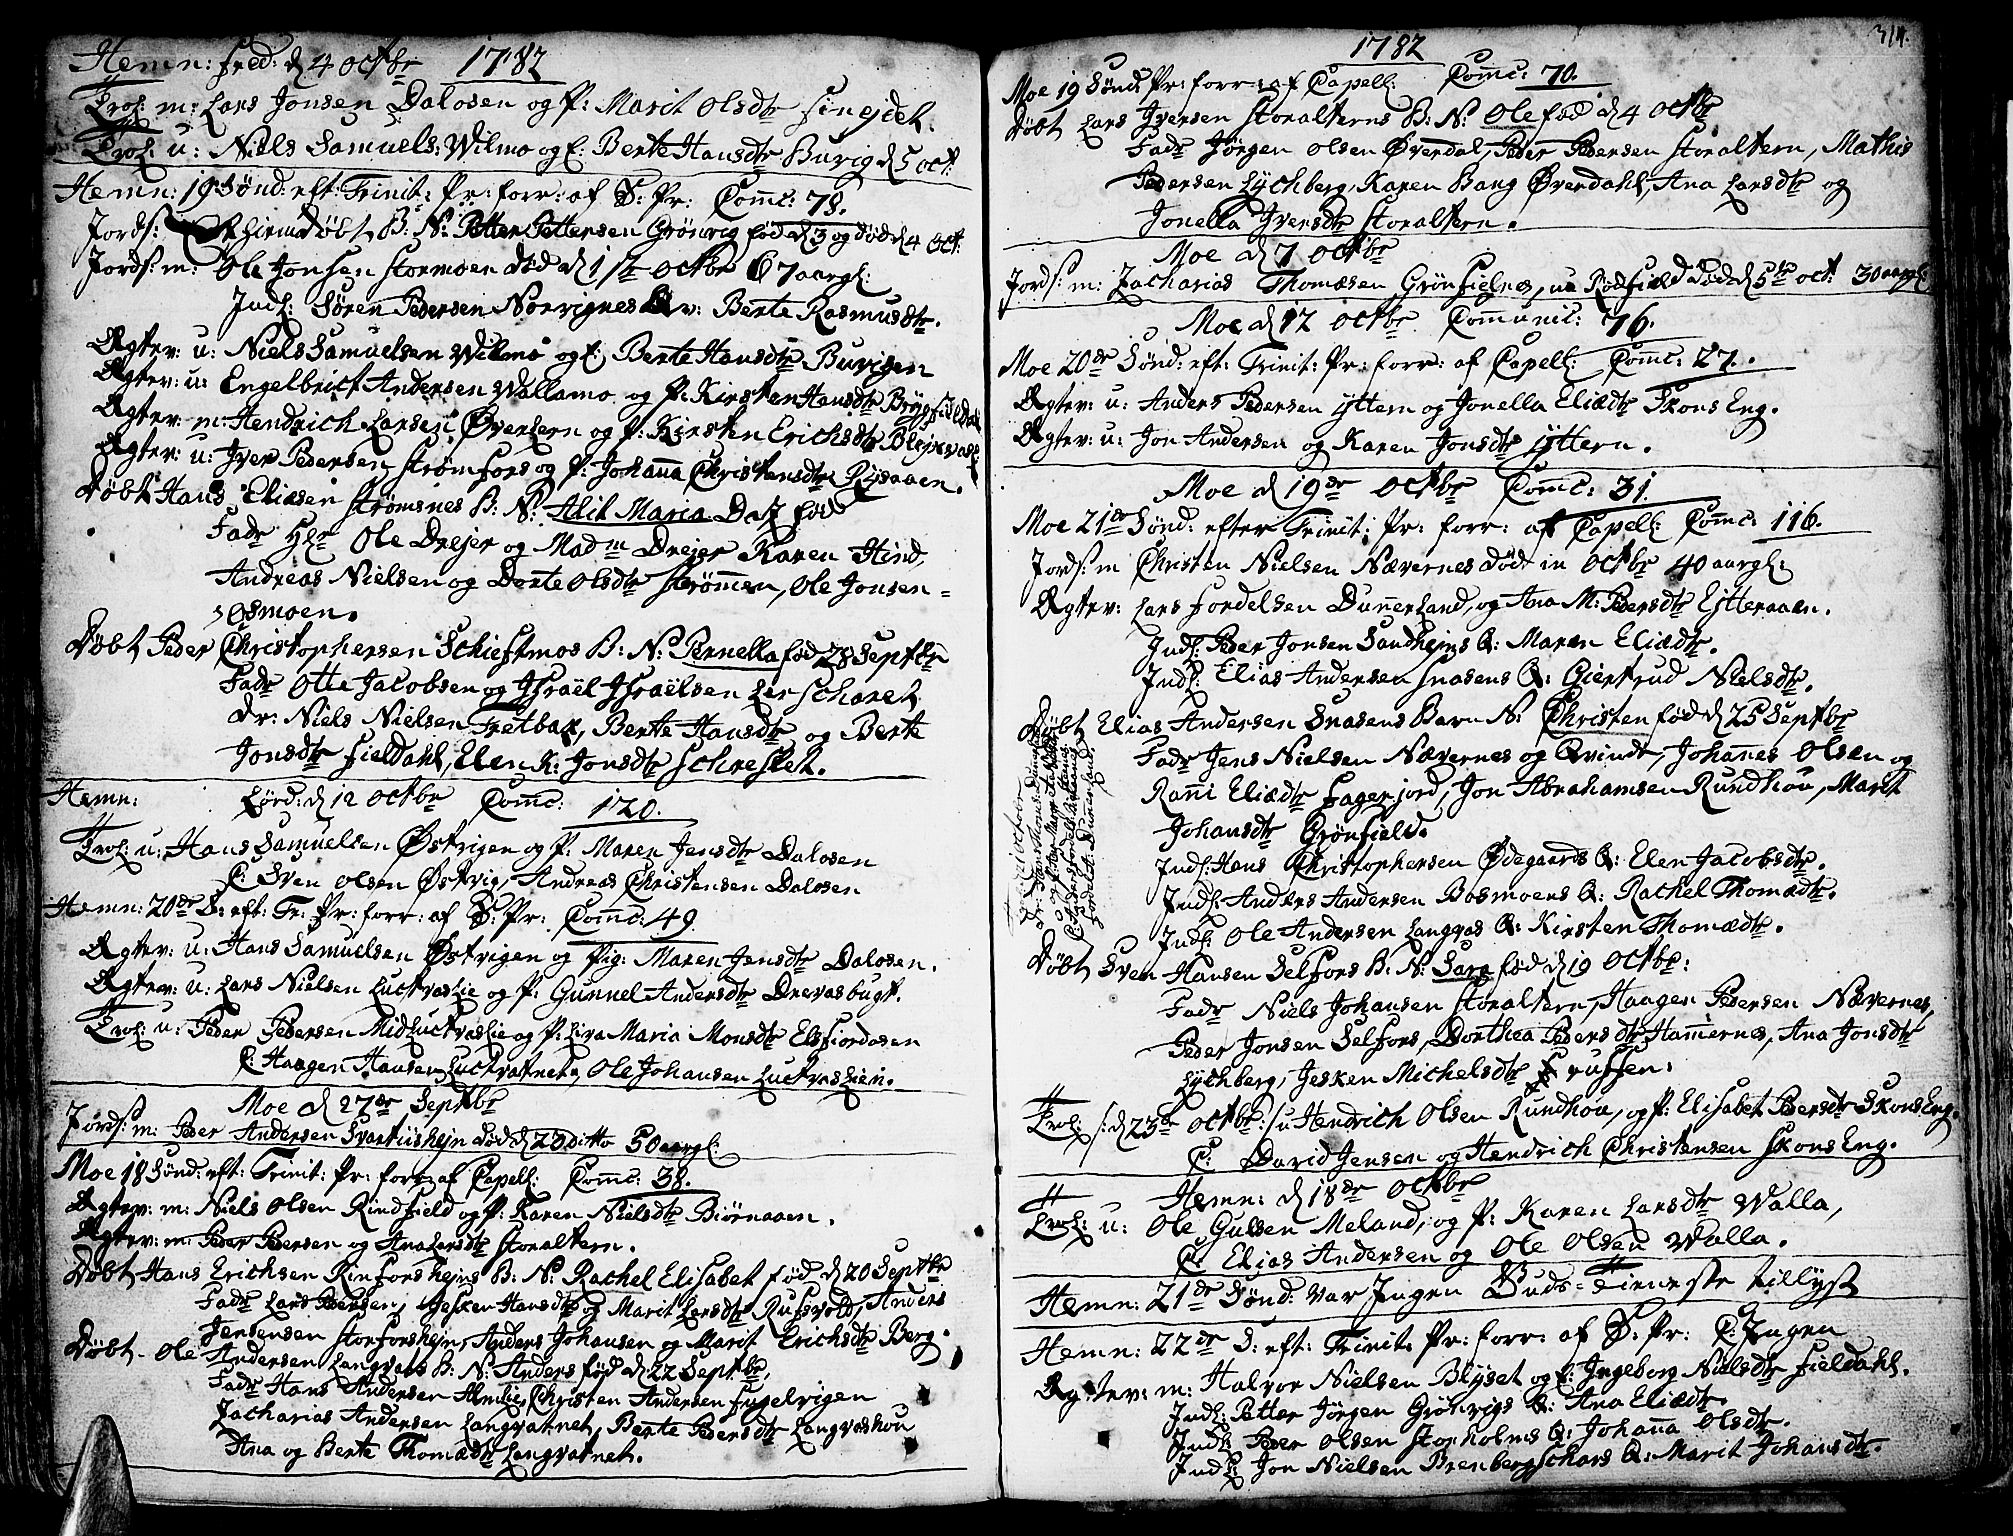 Hemn: fred: d 4 Octbr 1782
Trol: m: Lars Jonsen Dalosen og P: Marit Olsdtr
Trol: u: Niels Samuels: Wilmo og E: Berte Hansdtr Burvig d 5 oct:
Hemn: 19 Sønd: eft: Trinit: Pr: forr: af S: Pr: Comc: 78.
Jords: Hiemdøbt B: N: Petter Pettersen Grönvig fød d 3 og død d 4 Oct:
Jords: m: Ole Jonsen Stormoen død d 1ste Octbr 67 aargl:
Indl: Søren Pedersen Norvignes Qv: Berte Rasmusdtr.
Ægtev: u: Niels Samuelsen Wilmo og E: Berte Hansdtr Burvigen
Ægtev: u: Engelbrict Andersen Wallamo og P: Kirsten Hansdtr
Ægtev: m: Hendrich Larsen Øverlern og P: Kirsten Erichsdtr
Ægtev: u: Iver Pedersen Strømfors og P: Johanna Christensdtr Rysaaen.
Døbt Hans Eliæsen Strømsnes B: N: Alit Maria Datz fød
Fadr Hr Ole Drejer og Madm Drejer Karen Hind,
Andreas Nielsen og Dorte Olsdtr Strømmen, Ole Jonsen =
Osmoen.
Døbt Peder Christophersen Schieftmos B: N: Pernella fød 28 Septbr
Fadr Otte Jacobsen og Israël Israëlsen Lerscharet
Dr: Niels Nielsen Tretbak, Berte Hansdtr og Berte
Jonsdtr Fieldahl, Elen K: Jonsdtr Schresket.
Hemn: Lørd: d 12 Octbr Comc: 120.
Trol: u: Hans Samuelsen Østvigen og P: Maren Jensdtr Dalosen
C: Sven Olsen Østvig, Andreas Christensen Dalosen
Hemn: 20de S: eft: Tr: Pr: forr: af S: Pr: Comc: 49.
Ægtev: u: Hans Samuelsen Østvigen og Pig: Maren Jensdtr Dalosen.
Ægtev: u: Lars Nielsen Luctvaslie og P: Gunnel Andersdtr Drevasbugt.
Trol: u: Peder Pedersen Midluctvaslie og P: Liva Maria Monsdtr Elsfiordosen
C: Haagen Hansen Luctvatnet, Ole Johansen Luctvaslien.
Moe d 27de Septbr
Jords: m: Peder Andersen Svartiishejn død d 20 ditto 50 aargl:
Moe 18 Sønd: eft: Trinit: Pr: forr: af Capell: Comc: 38.
Ægtev: m: Niels Olsen Rindfield og P: Karen Nielsdtr Biørnaaen.
Ægtev: m: Peder Pedersen og Ana Larsdtr Storaltern.
Døbt Hans Erichsen Rinforshejns B: N: Rachel Elisabet fød d 20 Septbr
Fadr Lars Pedersen, Jesken Hansdtr og Marit Larsdtr Rufsvold, Anders
Jensensen Storforshejn, Anders Johansen og Marit Erichsdtr Berg.
Døbt - Ole Andersen Langvats B: N: Anders fød d 22 Septbr,
Fadr Hans Andersen Almlie, Christen Andersen Fugelvigen
Zacharias Andersen Langvatnet, Berte Pedersdtr Langvashou
Ana og Berte Thomædtr Langvatnet.
314.
1782
Moe 19 Sønd: Pr: forr: af Capell: Comc: 70.
Døbt Lars Iversen Storalterns B: N: Ole fød d 4 Octbr
Fadr Jørgen Olsen Øverdal, Peder Pedersen Storaltern, Mathis
Pedersen Lychberg, Karen Bang Øverdahl, Ana Larsdtr og
Jonella Iversdtr Storaltern.
Moe d 7 Octbr
Jords: m: Zacharias Thomæsen Grönfielnes, ne Rødfield død d 5te oct: 30 aargl:
Moe d 12 Octbr Communic: 76.
Moe 20de Sønd: eft: Trinit: Pr: forr: af Capell: Comc: 27.
Ægtev: u: Anders Pedersen Yttern og Jonella Eliædtr Skons Eng.
Ægtev: u: Jon Andersen og Karen Jonsdtr Yttern.
Moe d 19de Octbr Comc: 31.
Moe 21de Sønd: efter Trinit: Pr: forr: af Capell: Comc: 116.
Jords: m Christen Nielsen Nævernes død in Octbr 40 aargl:
Ægtev: Lars Fordelsen Dunnerland, og Ana M: Pedersdtr Ytteraaen.
Indl: Peder Jonsen Sandhejns Q: Maren Eliædtr.
Indl: Elias Andersen Snasens Q: Giertrud Nielsdtr.
Døbt Elias Andersen Snasens Barn N: Christen fød d 25 Septbr
Fadr Jens Nielsen Nævernes og Qvinde, Johannes Olsen og
Ranni Eliædtr Fagerjord, Jon Abrahamsen Rundhou, Marit
Johansdtr Grønfield.
Indl: Hans Christophersen Ødegaards Q: Elen Jacobsdtr.
Indl: Anders Andersen Bosmoens Q: Rachel Thomædtr.
Indl: Ole Andersen Langvas Q: Kirsten Thomædtr.
Døbt Sven Hansen Selfors B: N: Sara fød d 19 Octbr:
Fadr Niels Johansen Storaltern, Haagen Pedersen Nævernes,
Peder Jonsen Selfors, Dorthea Pedersdtr Hammernes, Ana Jonsdtr
Lychberg, Jesken Michelsdtr
Trol: s: d 23de Octbr: s: u: Hendrich Olsen Rundhou, og P: Elisabet Pedersdtr Skons Eng.
C: David Jensen og Hendrich Christensen Skons Eng.
Hemn: d 18de Octbr
Trol: u: Ole Gulsen Meland, og P: Karen Larsdtr Walla,
C: Elias Andersen og Ole Olsen Walla.
Hemn: 21de Sønd: var Ingen Guds-Tieneste tillyst
Hemn: 22de S: eft: Trinit: Pr: forr: af S: Pr: C: Ingen
Ægtev: m: Halvor Nielsen Blyset og E: Ingeborg Nielsdtr Fieldahl.
Indl: Petter Jørgen Grönvigs Q: Ana Eliædtr
Indl: Peder Olsen Storholms Q: Johanna Olsdtr.
Indl: Jon Nielsen Brenbergschars Q: Marit Johansdtr.